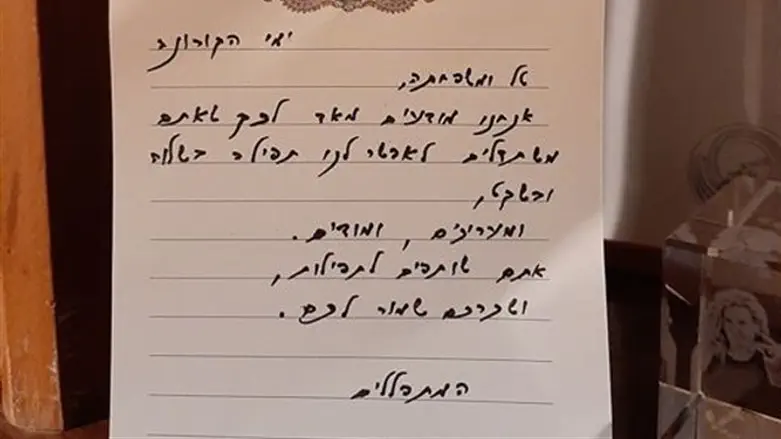 ימי הקורונה
טל ומשפחתה,
אנחנו מודעים מאד לכך שאתם
משתדלים לאפשר לנו תפילה בשלוה
ובשקט,
ומעריכים, ומודים.
אתם שותפים לתפילות,
ושכרכם שמור לכם.
המתפללים